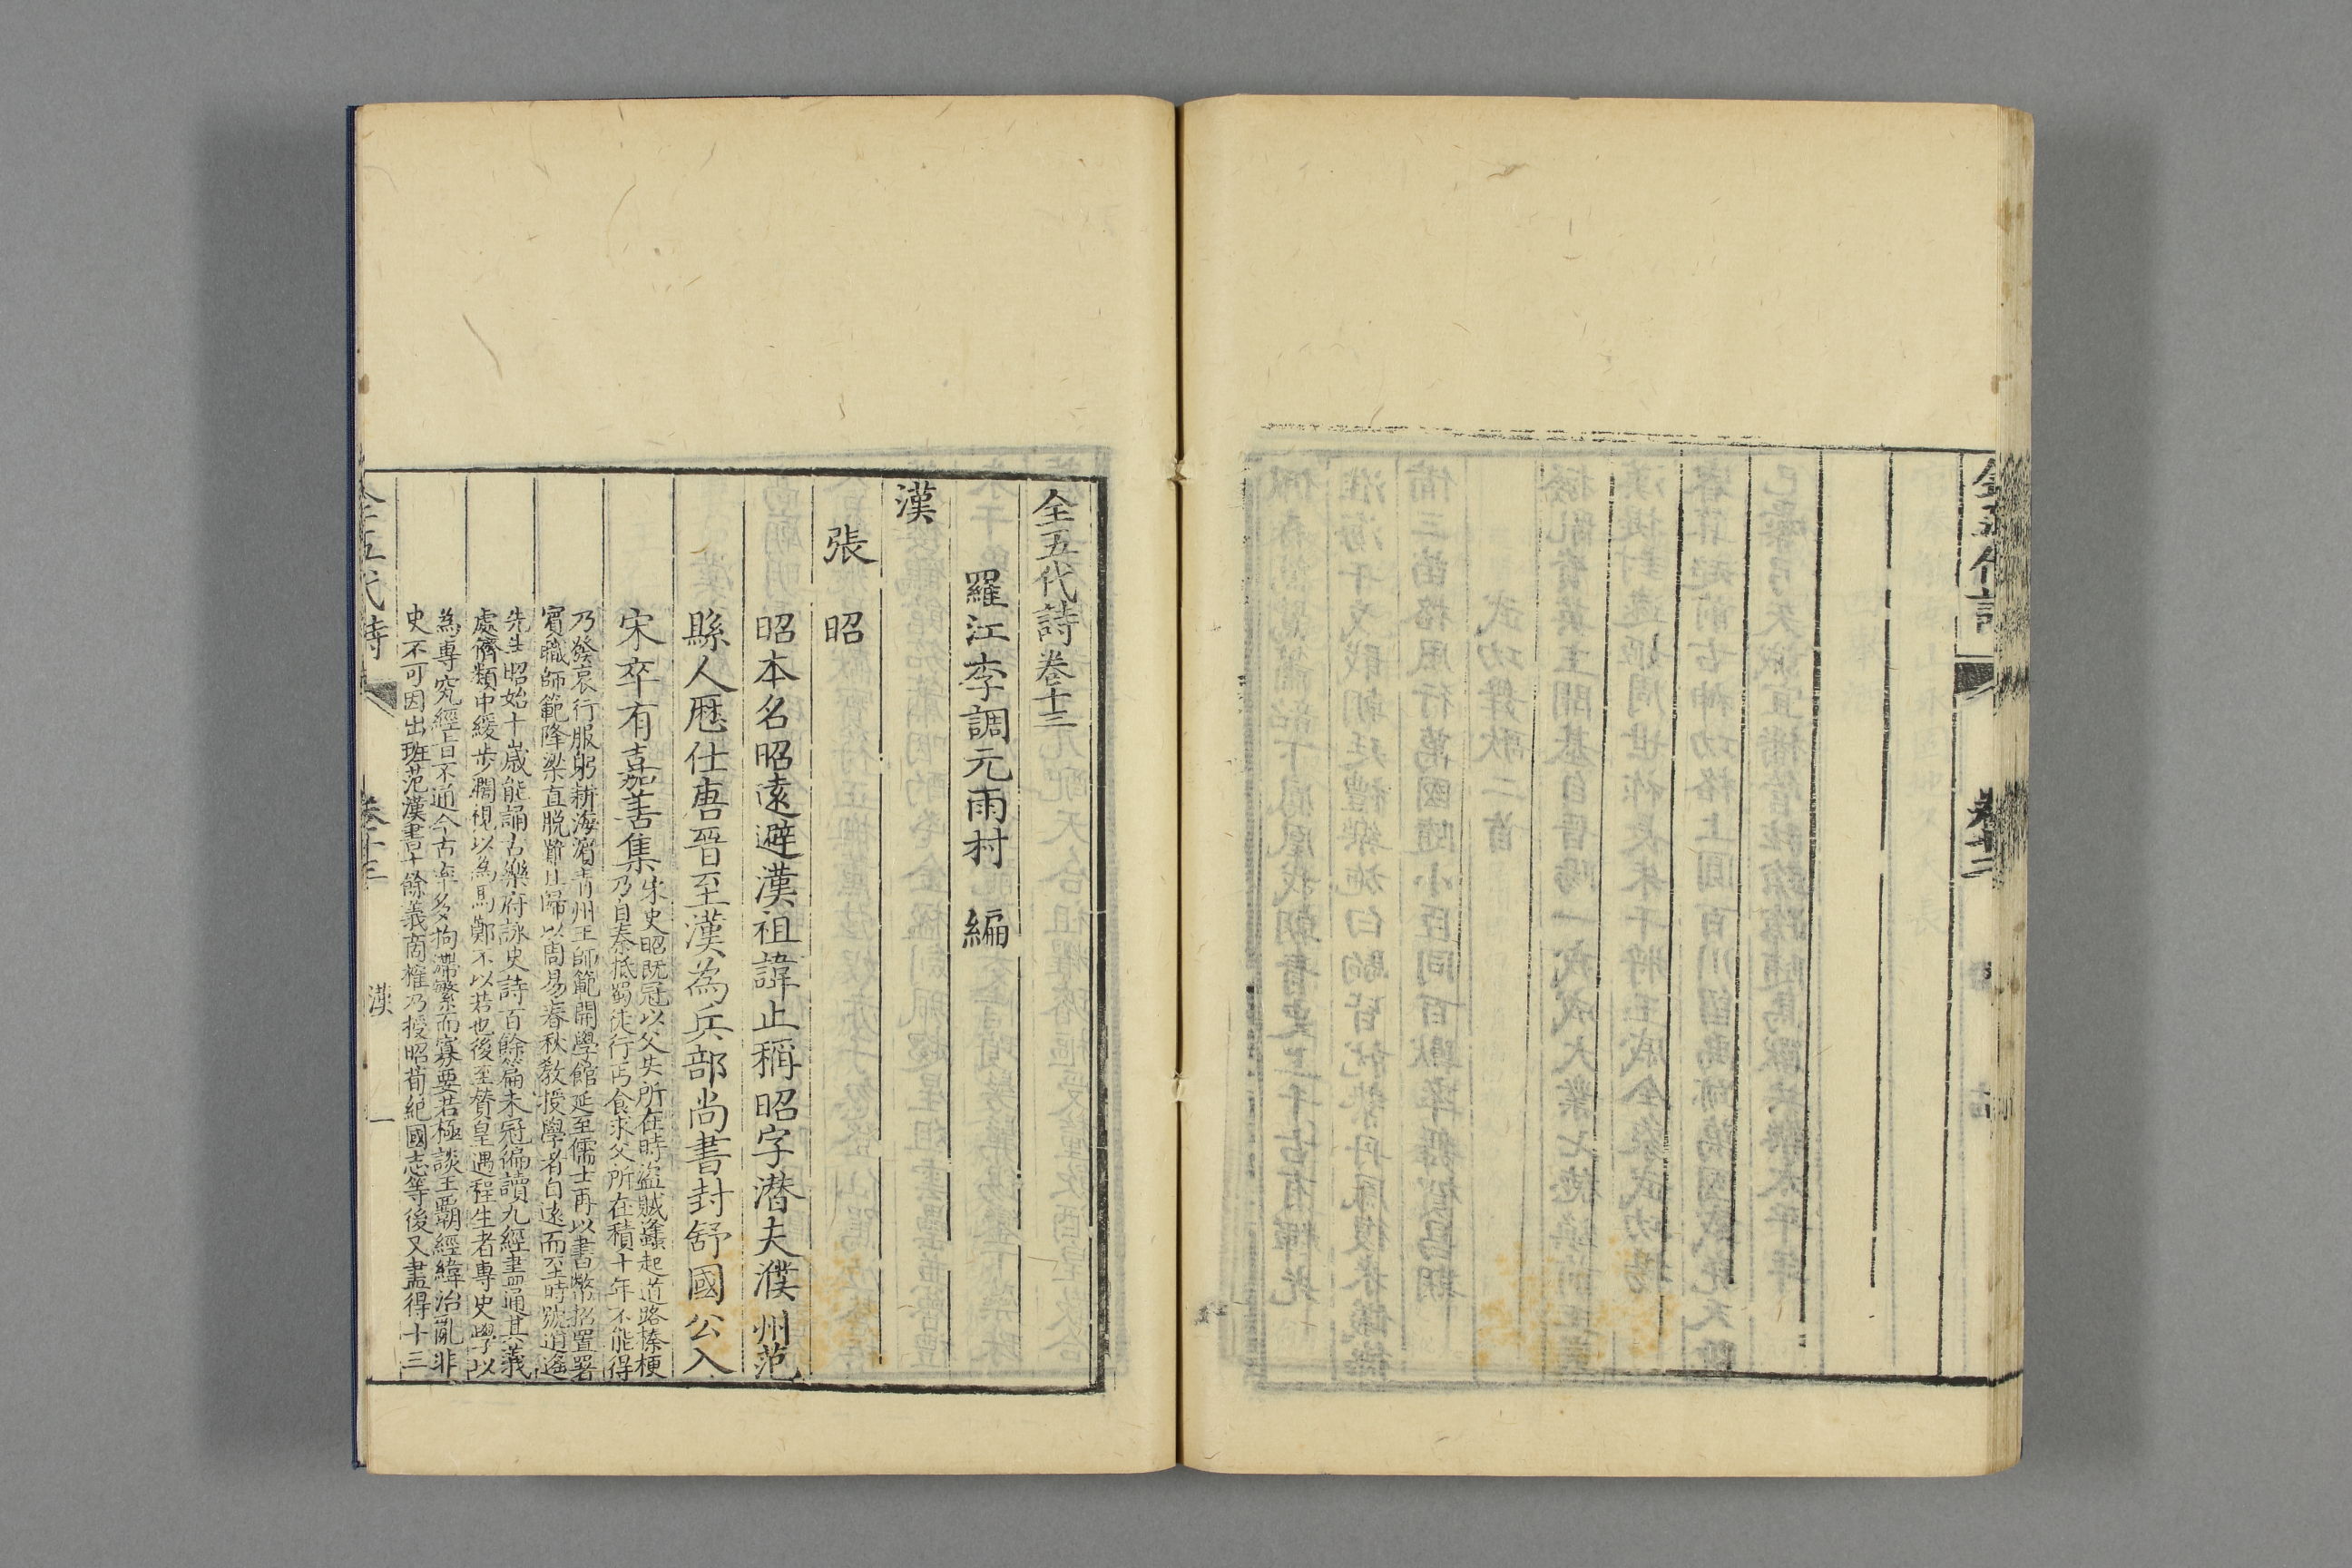 全五代詩卷十三
羅江李調元雨村 編
漢
張 昭
昭本名昭遠避漢祖諱止稱昭字潛夫濮州范
縣人歷仕唐晉至漢為兵部尚書封舒國公入
宋卒有嘉善集
宋史昭既冠以父失所在時盜賊蠭起道路榛梗
乃自秦抵蜀徒行丐食求父所在積十年不能得
乃發哀行服躬耕海濱青州王師範開學館延至儒士再以書幣招置署
賓職師範降梁直脫難北歸以周易春秋教授學者自遠而至時號逍遙
先生昭始十歲能誦古樂府詠史詩百餘篇未冠徧讀九經盡通其義
處儕類中緩步闊視以為馬鄭不以若也後至贊皇遇程生者專史學以
為專究經旨不通今古率多拘滯繁而寡要若極談王霸經緯治亂非
史不可因出班范漢書十餘義商榷乃授昭荀紀國志等後又盡得十三
全五代詩
卷十三
漢
一
全五代詩
卷十二